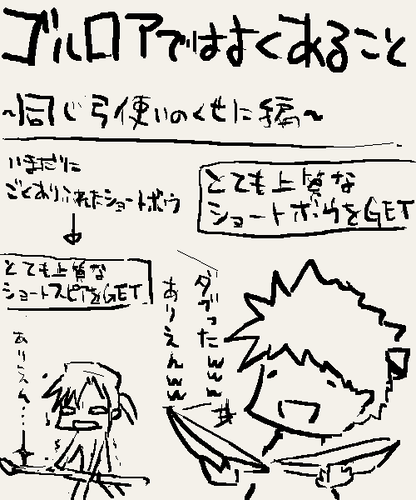 ゴルロアではよくあること
~同じ弓使いのくせに編~
いまだに
ごくありふれたショートボウ
とても上質な
ショートボウをGET
とても上質な
ショートスピアをGET
ダブったwww
ありえんwww
ありえん…